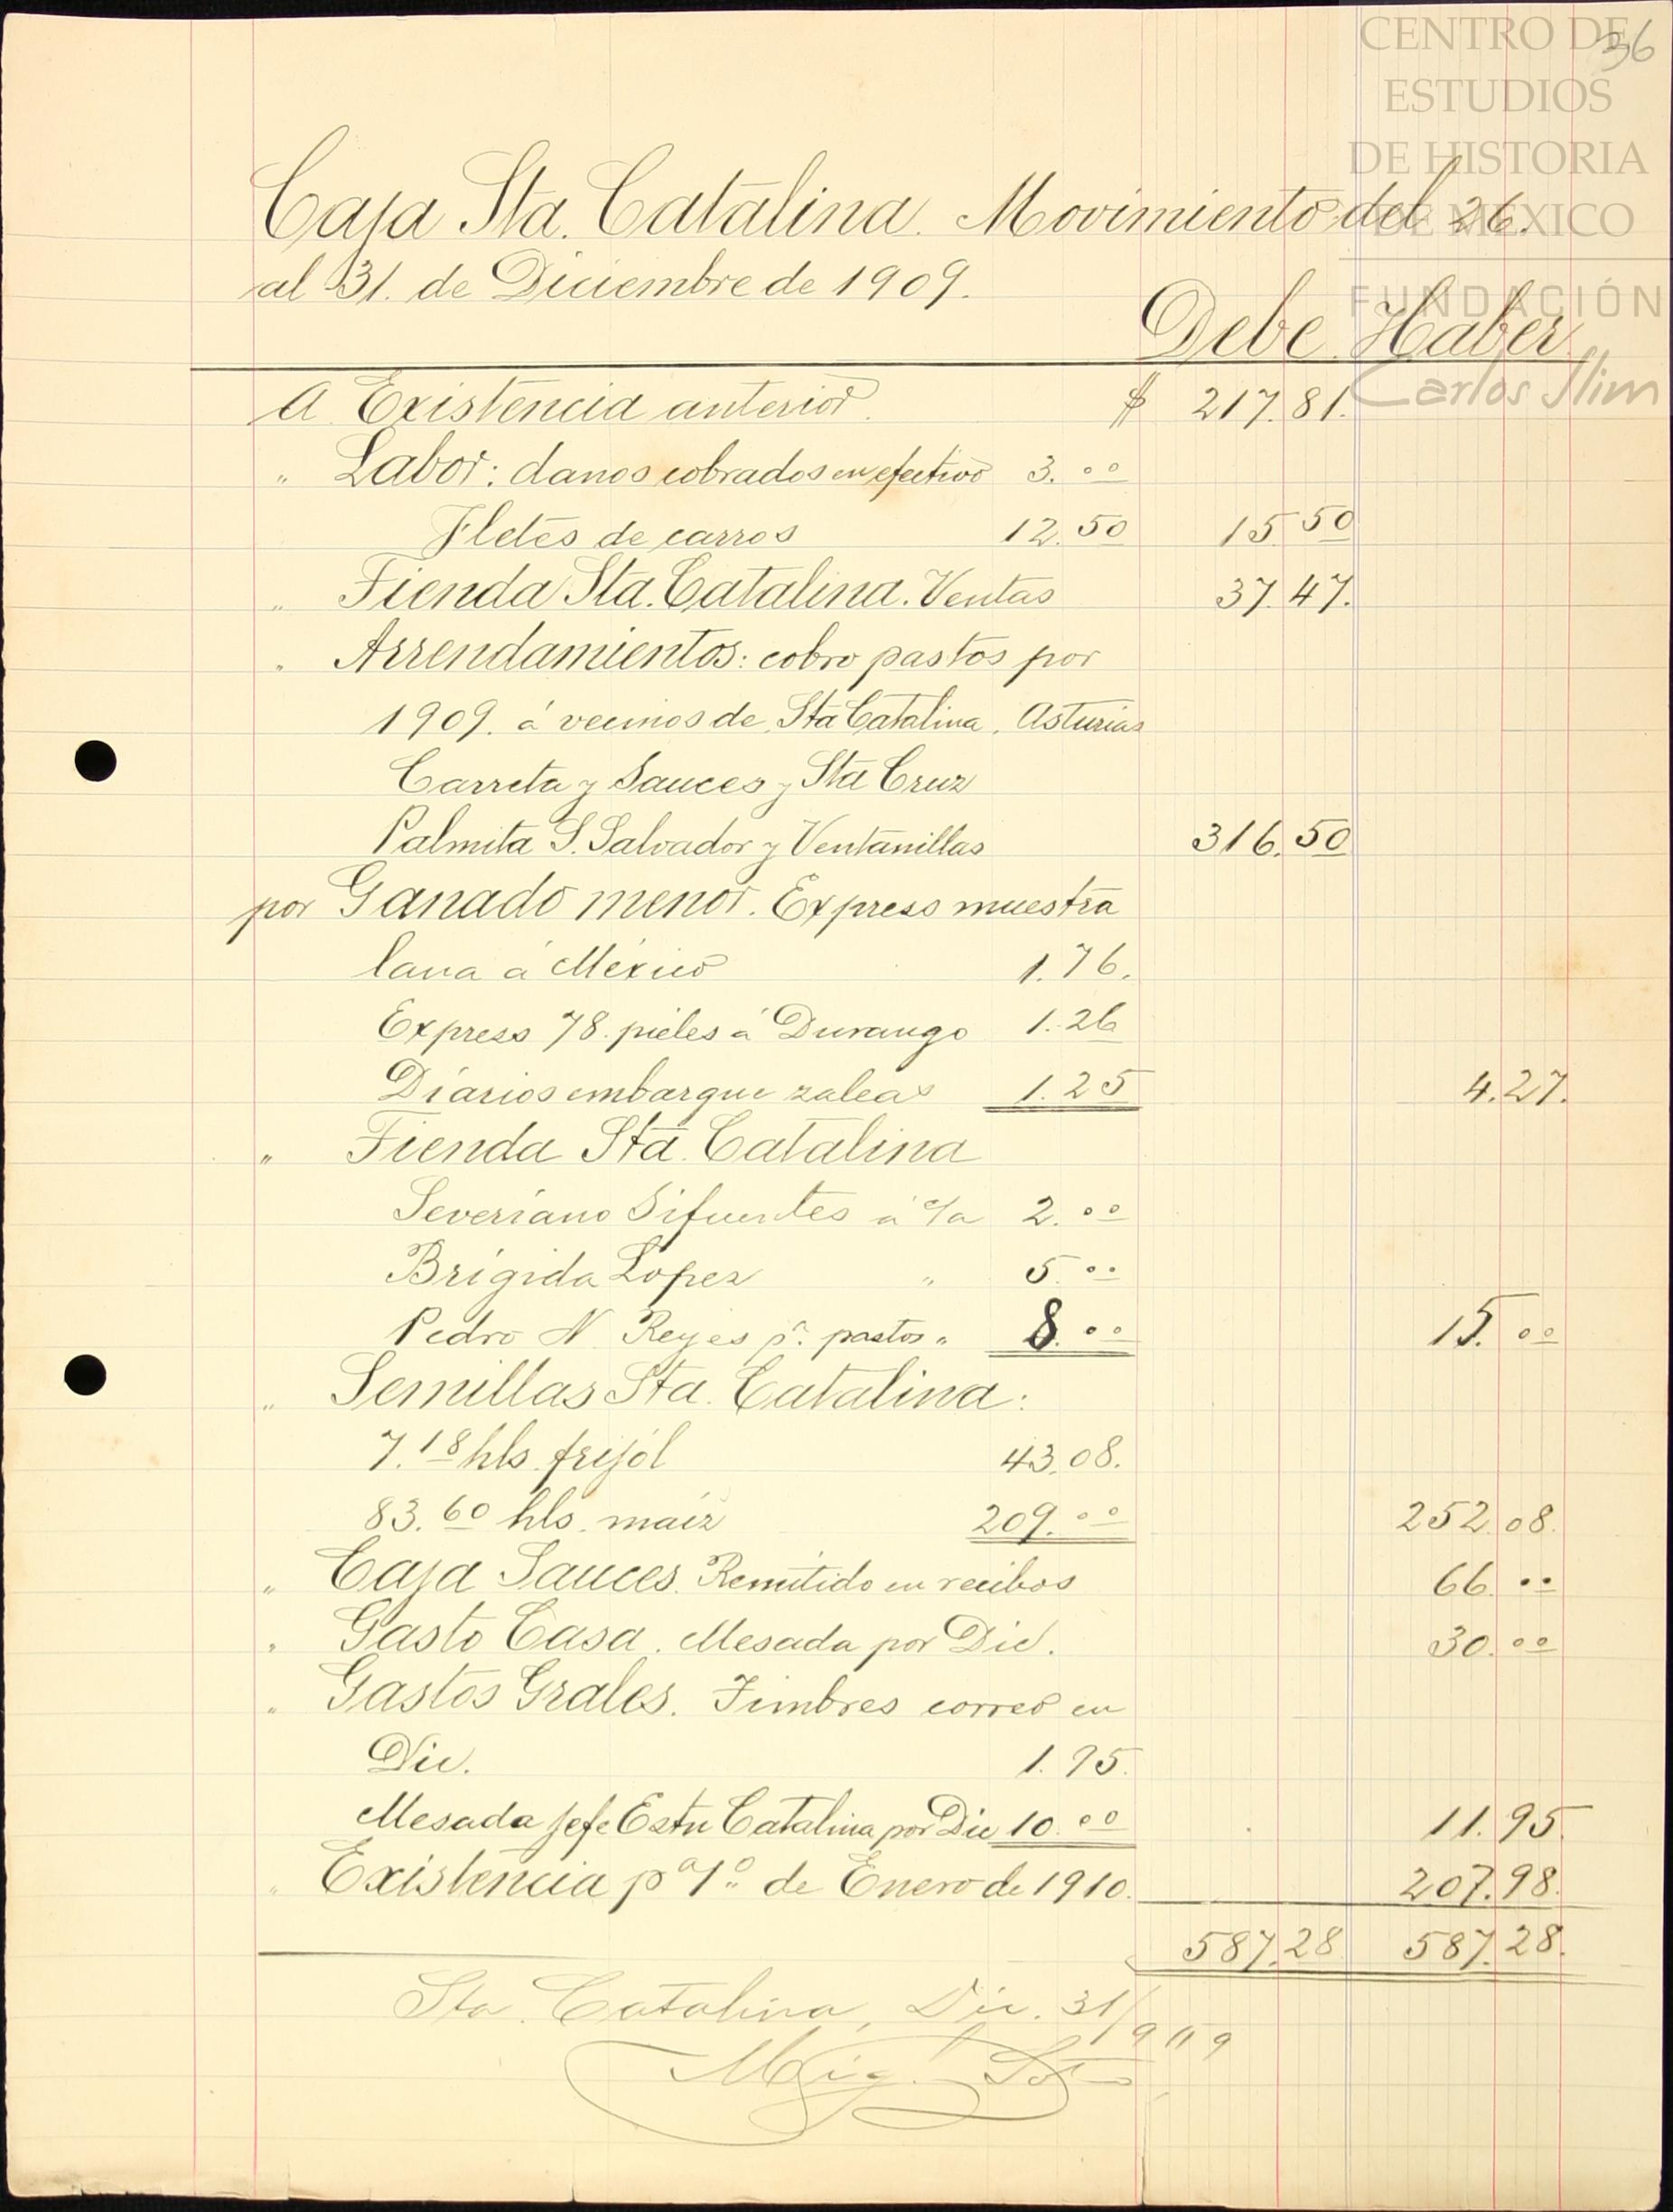 CENTRO DE
ESTUDIOS
DE HISTORIA
DE MÉXICO
FUNDACIÓN
Carlos Slim
36
Caja Sta. Catalina. Movimiento del 26.
al 31. de Diciembre de 1909.
Debe Haber
A Existencia anterior. $ 217.81.
" Labor: danos cobrados en efectivo 3.00
Fletes de carros 12.50 15.50
" Tienda Sta. Catalina. Ventas 37.47.
" Arrendamientos: cobro pastos por
1909. á vecinos de Sta Catalina, Asturias
Carreta y Sauces y Sta Cruz
Palmita S. Salvador y Ventanillas 316.50
por Ganado menor. Express muestra
lana á México 1.76.
Express 78. pieles á Durango 1.26
Diarios embarque zaleas 1.25 4.27.
" Tienda Sta. Catalina
Severiano Sifuentes á c/a 2.00
Brígida Lopez " 5.00
Pedro N. Reyes pa. pastos " 8.00 15.00
" Semillas Sta. Catalina:
7.18 hls. frijol 43.08.
83.60 hls. maíz 209.00 252.08.
" Caja Sauces. Remitido en recibos 66.00
" Gasto Casa. Mesada por Dic. 30.00
" Gastos Grales. Timbres correo en
Dic. 1.95.
Mesada Jefe Estn Catalina por Dic 10.00 11.95
" Existencia pa 1o. de Enero de 1910. 207.98.
587.28 587.28.
Sta. Catalina, Dic. 31/909
Mig.